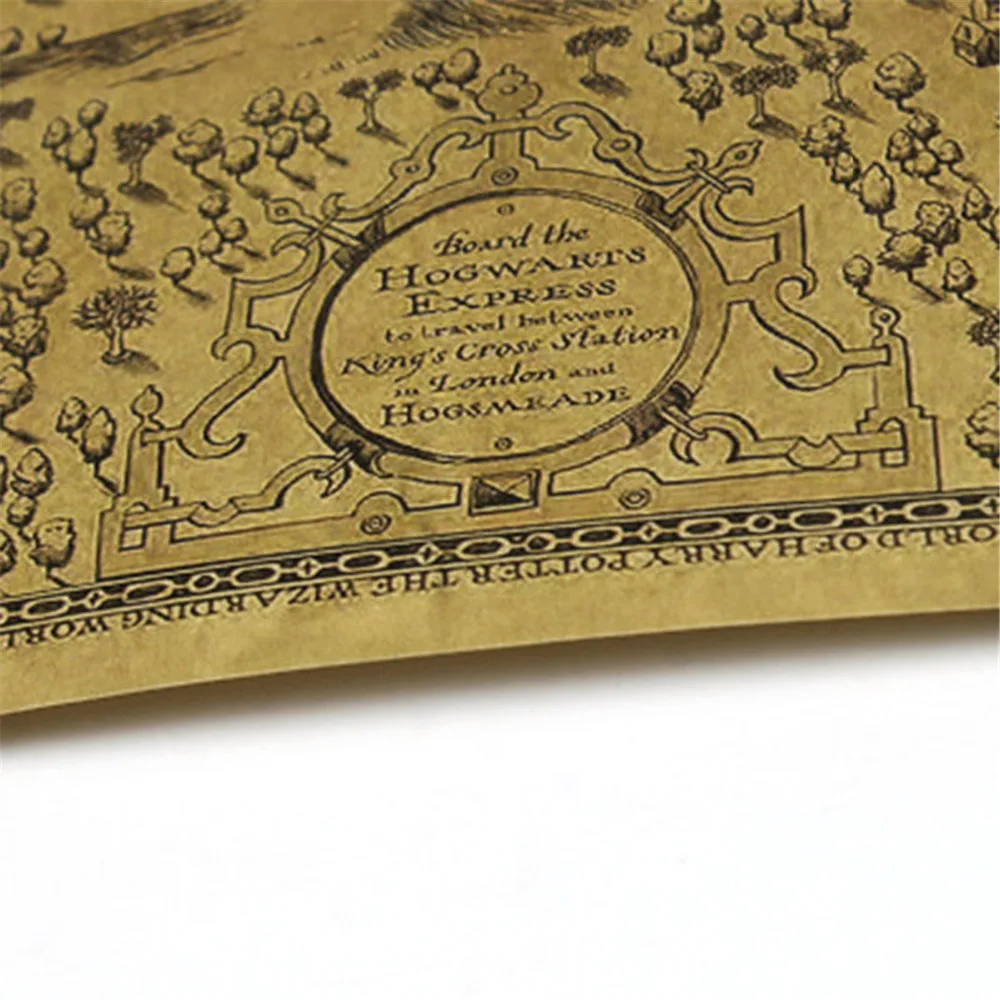 Board the
HOGWARTS
EXPRESS
to travel between
King's Cross Station
in London and
HOGSMEADE
WORLD OF HARRY POTTER THE WIZARDING WORL